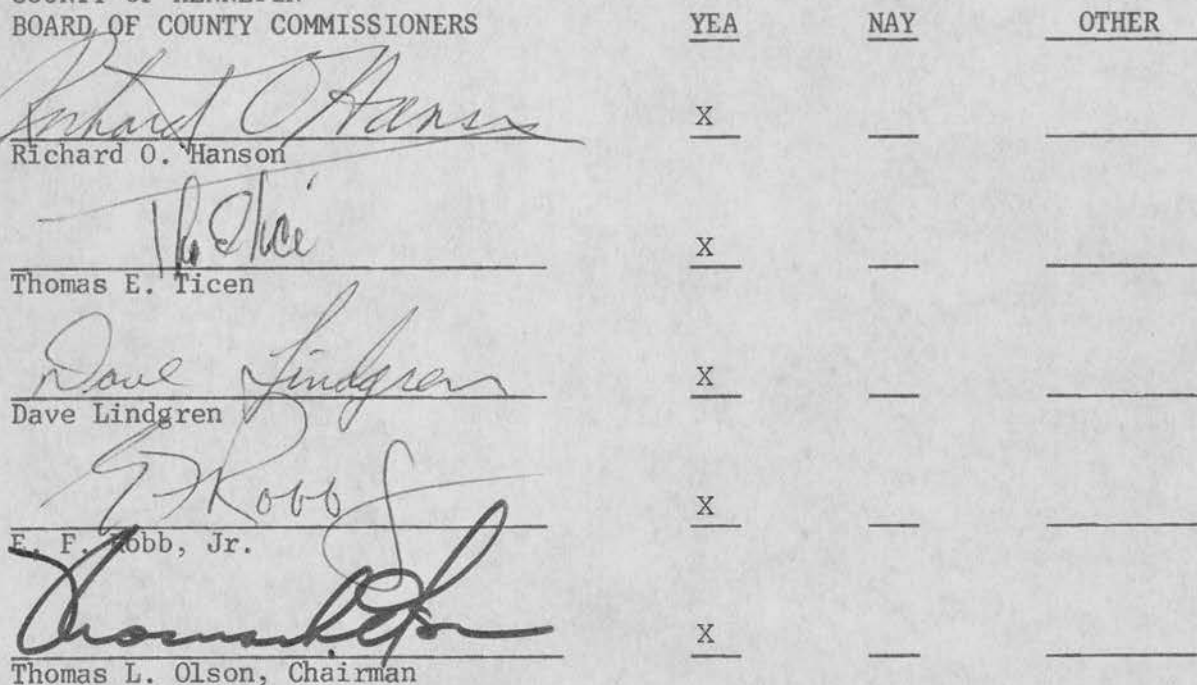 BOARD OF COUNTY COMMISSIONERS YEA NAY OTHER
Richard O Hanson X
Richard O. Hanson
X
Thomas E. Ticen
Dave Lindgren X
Dave Lindgren
E F Robb Jr X
E. F. Robb, Jr.
Thomas L Olson X
Thomas L. Olson, Chairman